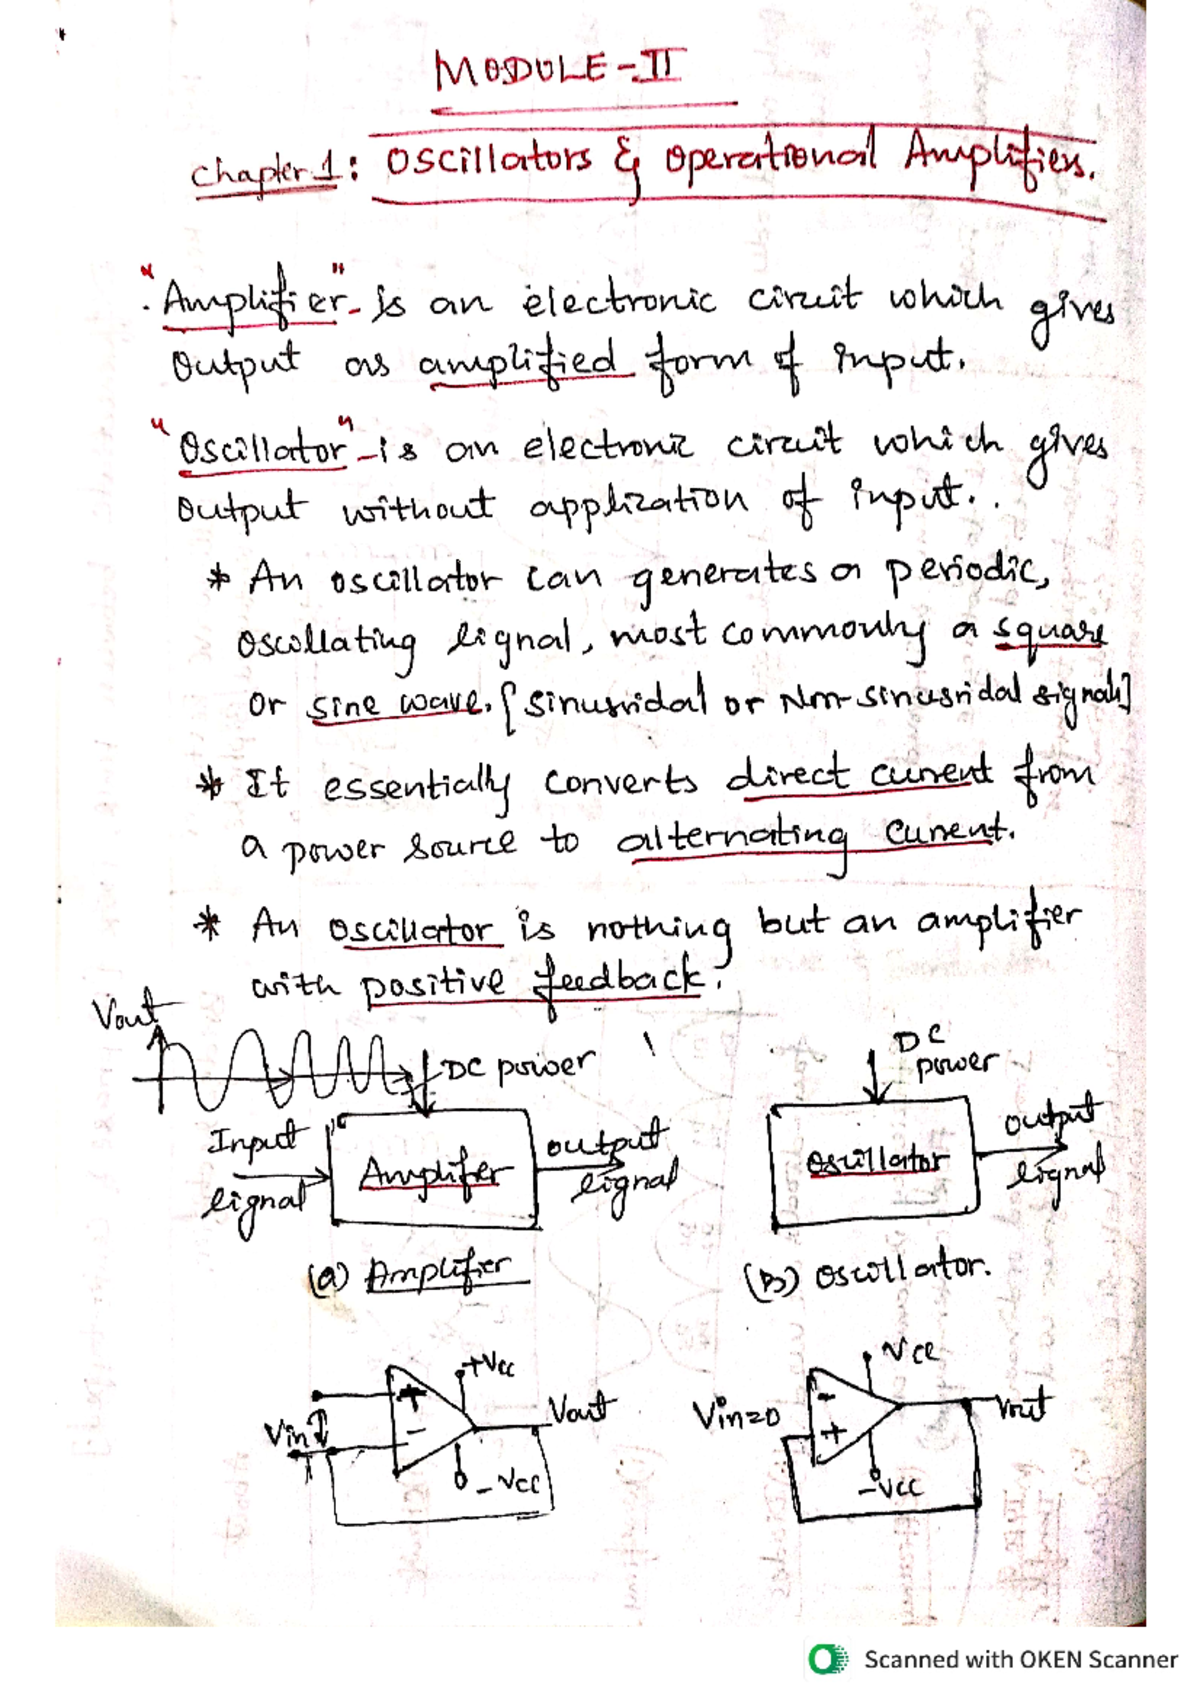 MODULE-II
Chapter 1: Oscillators & Operational Amplifiers.
"Amplifier" - is an electronic circuit which gives
Output as amplified form of input.
"Oscillator" - is an electronic circuit which gives
Output without application of input..
* An oscillator can generates a periodic,
oscillating signal, most commonly a square
or sine wave. [sinusoidal or Non-sinusoidal signals]
* It essentially converts direct current from
a power source to alternating current.
* An oscillator is nothing but an amplifier
with positive feedback.
Vout
DC power
Input
signal
Amplifer
output
signal
(a) Amplifier
DC
power
Oscillator
output
signal
(B) Oscillator.
+Vcc
+
-
Vin
Vout
-Vcc
Vcc
Vin=0
-
+
Vout
-Vcc
Scanned with OKEN Scanner